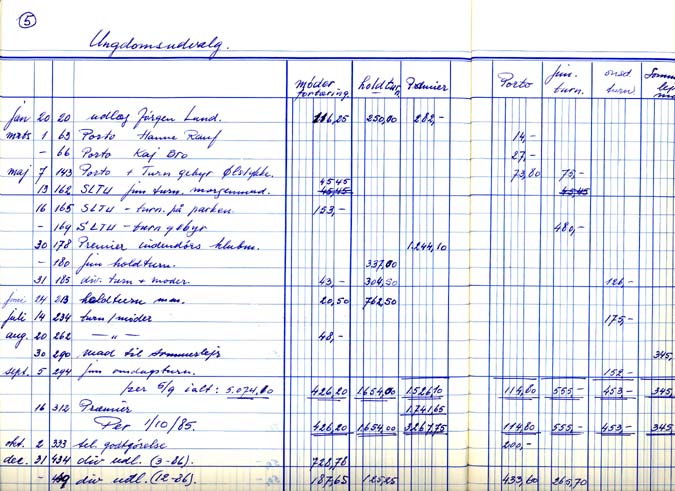 5
Ungdomsudvalg.
møder fortæring. holdturn. Præmier Porto jun. turn. onsd. turn.
jan 20 20 udlæg Jörgen Lund. 116,25 250,00 282,-
marts 1 63 Porto Hanne Rauf 14,-
- 66 Porto Kaj Bro 27,-
maj 7 143 Porto + Turn gebyr Ølstykke. 73,80 75,-
13 162 SLTU jun turn. morgenmad. 45,45
16 165 SLTU - turn. på parken. 153,-
- 164 SLTU - turn gebyr 480,-
30 178 Præmier indendörs klubm. 1.244,10
- 180 jun holdturn. 337,00
31 185 div. turn + møder. 43,- 304,50 126,-
juni 24 213 holdturn mm. 20,50 762,50
juli 14 234 turn/møder 175,-
aug. 20 262 -"- 48,-
30 290 mad til sommerlejr 345,
sept. 5 294 jun onsdagsturn. 152,-
per 5/9 ialt: 5.074,80 426,20 1654,00 1526,10 114,80 555,- 453,- 345,
16 312 Præmier 1.741,65
Per 1/10/85. 426,20 1.654,00 3267,75 114,80 555,- 453,- 345,
okt. 2 333 tel. godtgörelse 200,-
dec. 31 434 div udl. (3-86). 728,76
- div udl. (12-86). 187,65 125,25 433,60 265,70